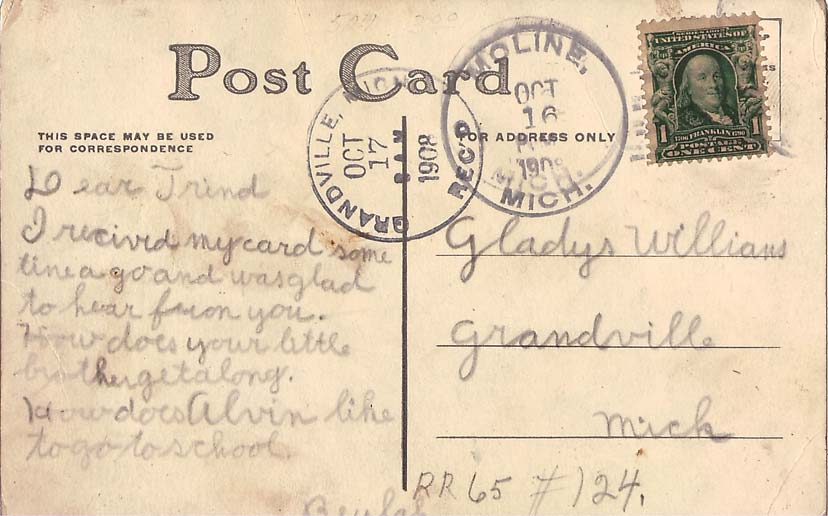 Post Card
THIS SPACE MAY BE USED
FOR CORRESPONDENCE
FOR ADDRESS ONLY
GRANDVILLE, MICH.
OCT
17
8 AM
1908
REC'D
MOLINE,
OCT
16
1908
MICH.
SERIES 1902
UNITED STATES OF
AMERICA
1 1706 FRANKLIN 1790 1
POSTAGE
ONE CENT
Dear Friend
I recivid my card some
tine a go and was glad
to hear fron you.
How does your little
brother get along.
How does Alvin like
to go to school.
Beulah
Gladys Willians
Grandville
Mich
RR 65 # 124.